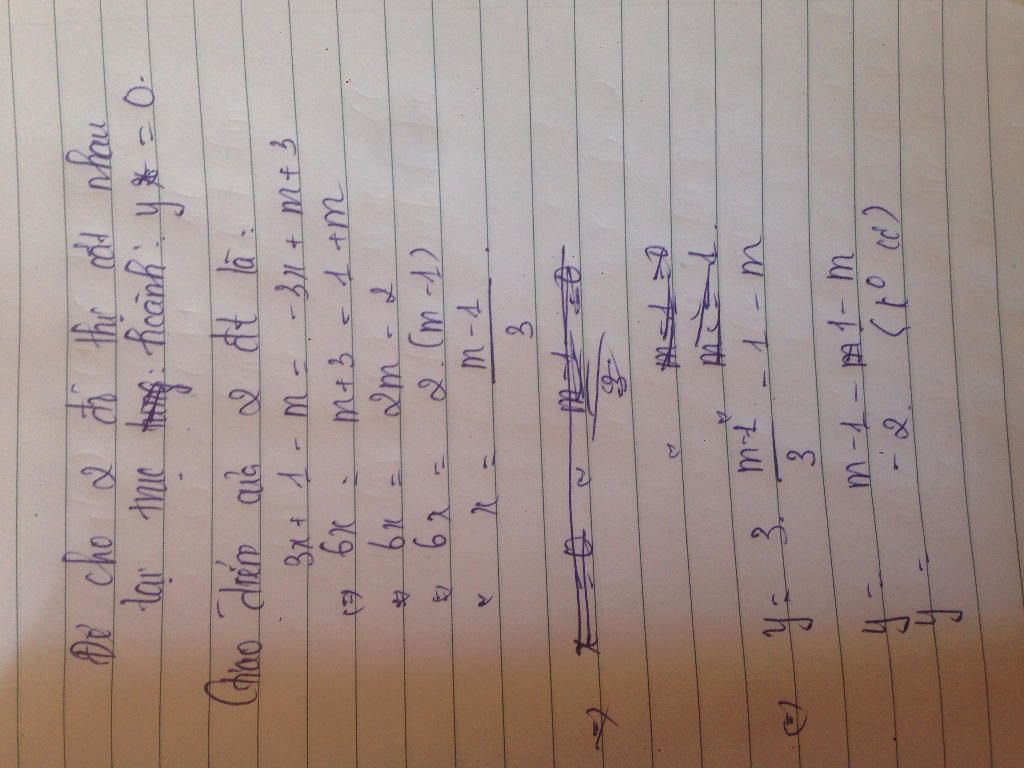 Để cho 2 đồ thị cắt nhau
tại trục hoành: y = 0.
Giao điểm của 2 đt là:
3x + 1 - m = -3x + m + 3
6x - m + 3 = 1 + m
6x = 2m - 2
6x = 2.(m - 1)
x = m - 1 / 3
x = 0
m - 1 / 3 = 0
m - 1 = 0
m = 1
y = 3. m - 1 / 3 - 1 - m
y = m - 1 - 1 - m
y = -2.